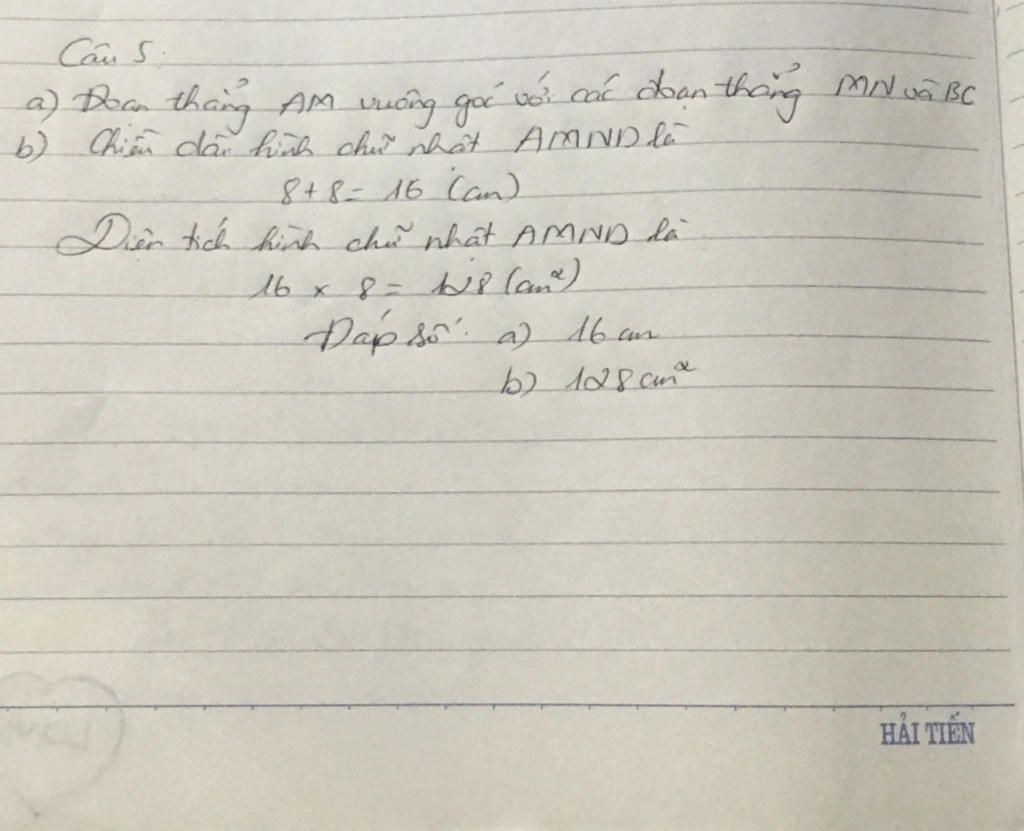 Câu 5:
a) Đoạn thẳng AM vuông góc với các đoạn thẳng MN và BC
b) Chiều dài hình chữ nhật AMND là
8 + 8 = 16 (cm)
Diện tích hình chữ nhật AMND là
16 x 8 = 128 (cm²)
Đáp số: a) 16 cm
b) 128 cm²
HẢI TIẾN